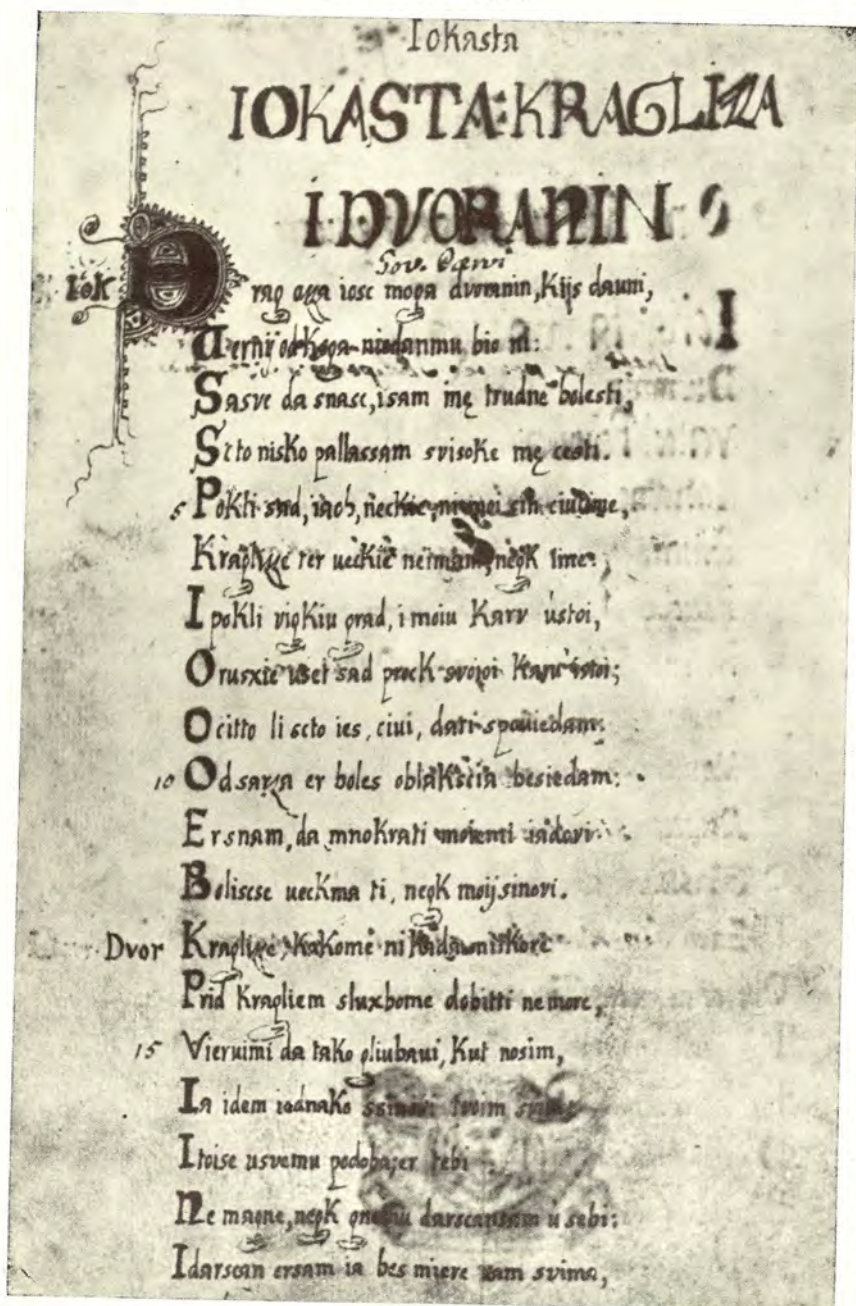 Iokasta
IOKASTA: KRAGLIZA
I DVORANIN
Iok Drag aga iosc moga dvoranin, Kijs dauni,
od Koga niedanmu bio ni:
Sasve da snasc, i sam mę trudne bolesti,
Scto nisko pallassam svisoke mę cesti.
5 Pokli sad, iaoh, neckie,
Kragligę ter ueckiè neimam, negk ime:
I pokli vigkiu grad, i moiu Karv ustoi,
Orusxie uset sad prock svojoi Karvi
Ocitto li scto ies, ciui, dati spouiedam:
10 Od sarga er boles oblakscia besiedam:
Er snam, da mnokrati moiemi iadovi
Boliscse ueckma ti, negk moij sinovi.
Dvor Kragligę, Kakomè ni
Prid Kragliem sluxbome dobitti nemore,
15 Vieruimi da tako gliubaui, Kut nosim,
Ia idem iednako tvoim
I toise usvemu podoba; er tebi
Ne magne, negk darscansam ù sebi:
I darscan ersam ia bes miere vam svima,